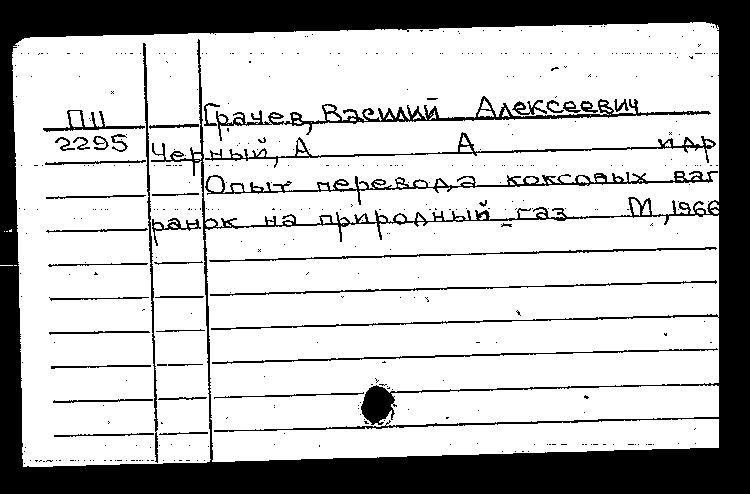 ПII Грачев, Василий Алексеевич
2295 Черный, А А и др
Опыт перевода коксовых ваг
ранок на природный газ М., 1966